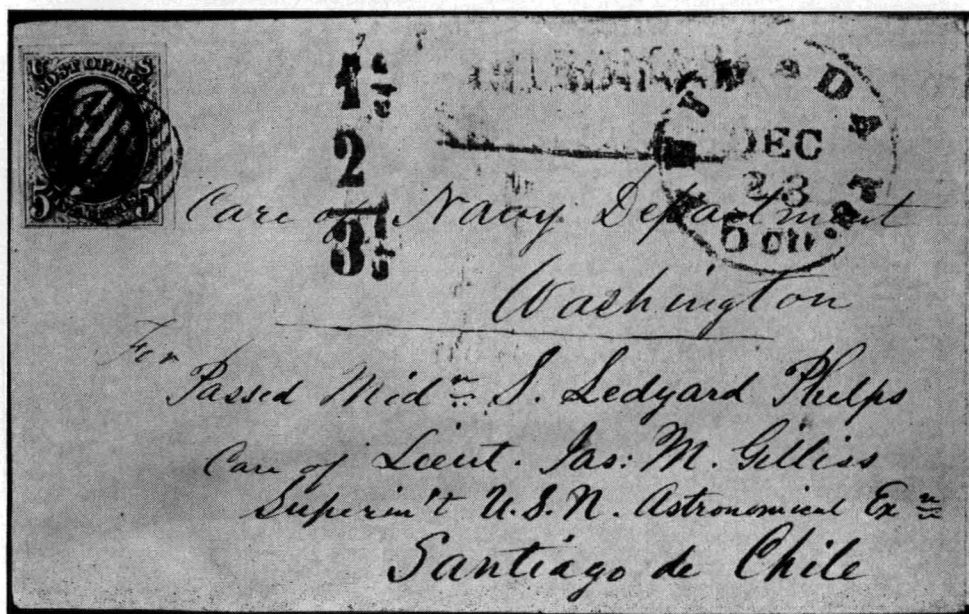 U S
POST OFFICE
5 5
1
2
3
DEC
23
5 cts
Care of Navy Department
Washington
For
Passed Midn S. Ledyard Phelps
Care of Lieut. Jas: M. Gilliss
Superin't U.S.N. Astronomical Exn
Santiago de Chile